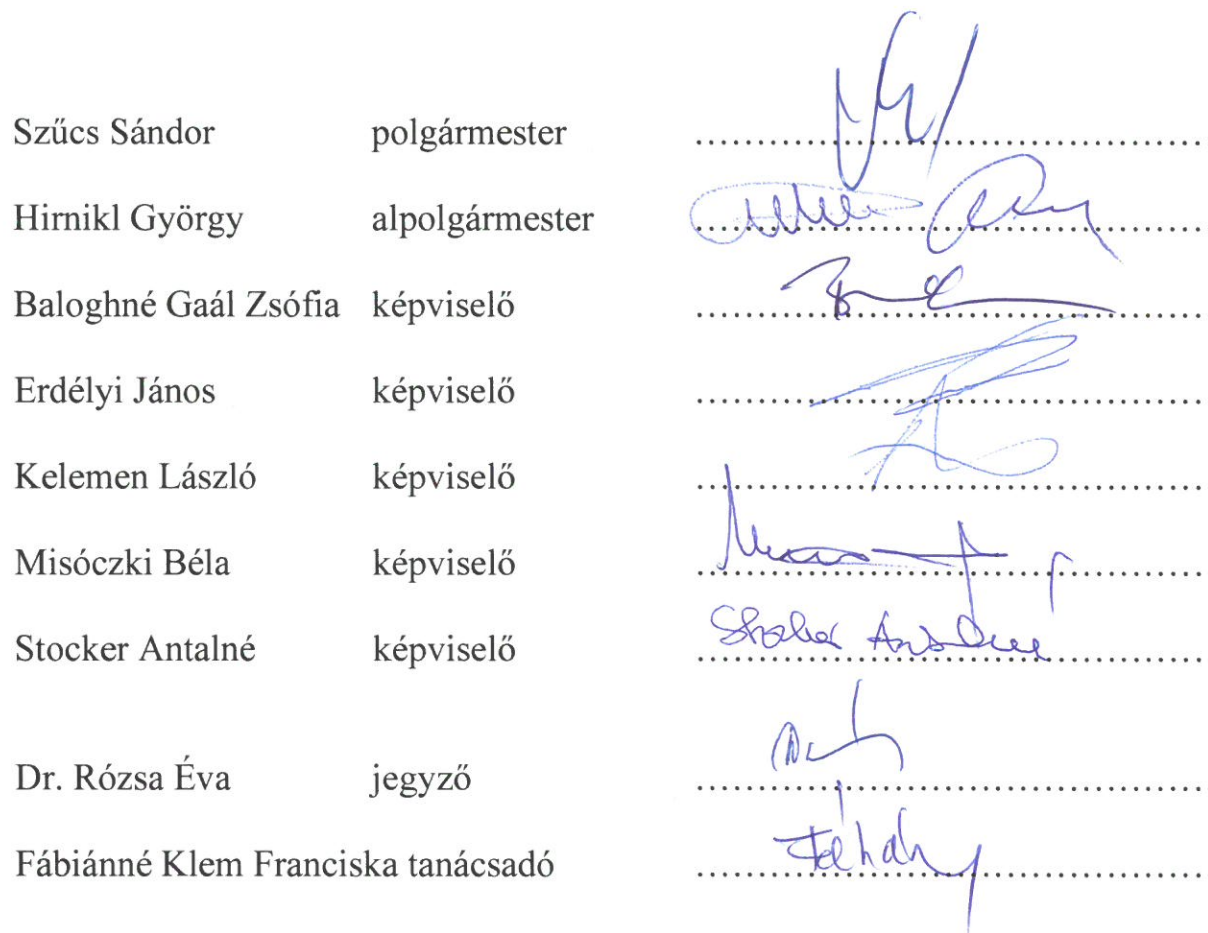 Szűcs Sándor polgármester ........................................
Hirnikl György alpolgármester ........................................
Baloghné Gaál Zsófia képviselő ........................................
Erdélyi János képviselő ........................................
Kelemen László képviselő ........................................
Misóczki Béla képviselő ........................................
Stocker Antalné képviselő ........................................
Dr. Rózsa Éva jegyző ........................................
Fábiánné Klem Franciska tanácsadó ........................................